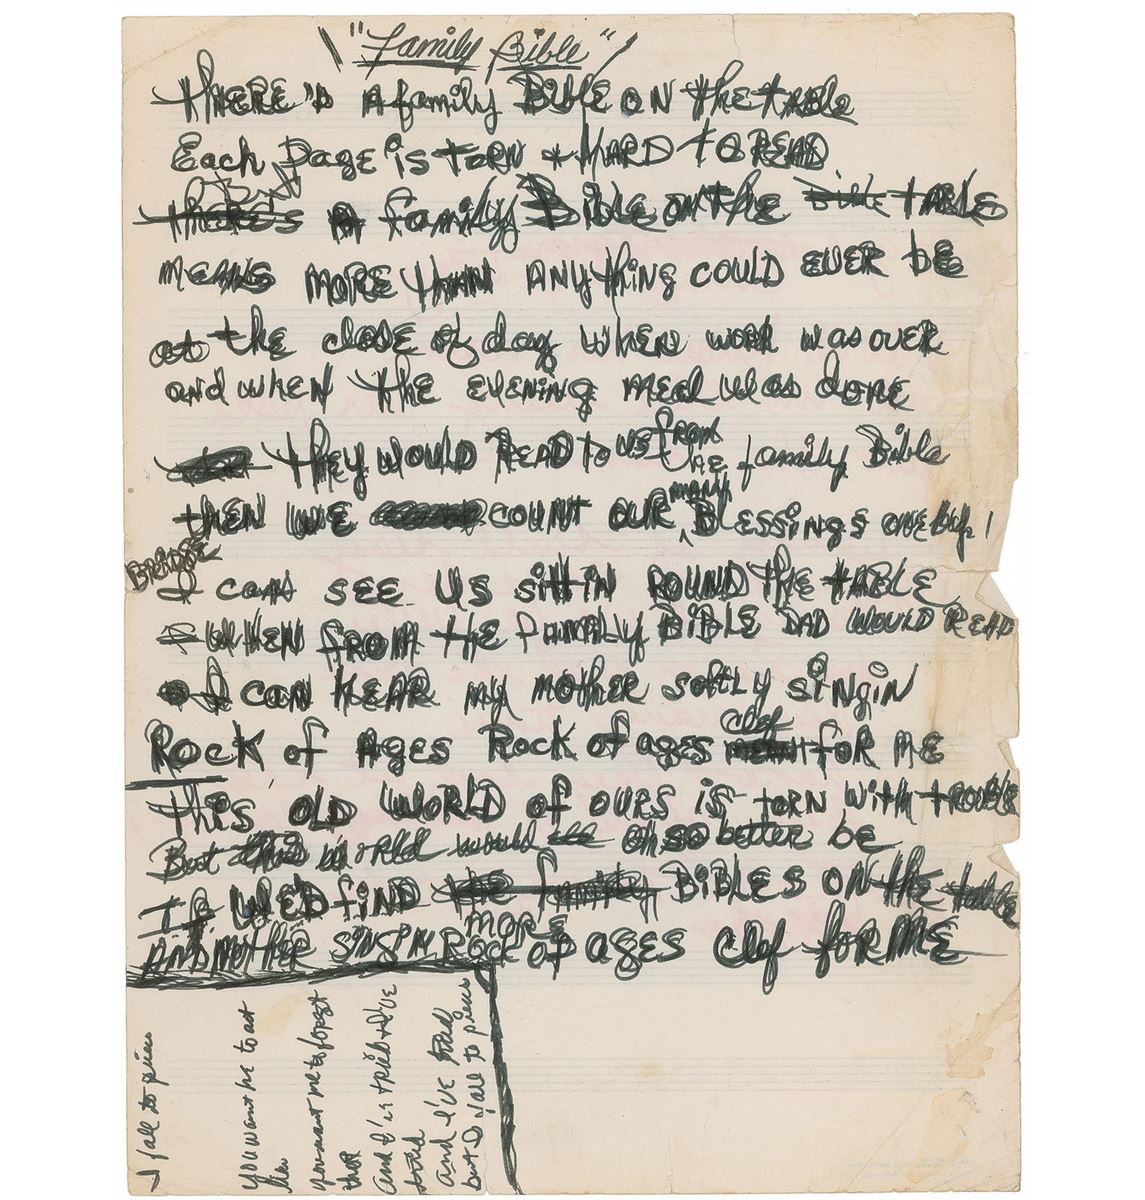 "Family Bible"
THERE'S A family BiblE ON the table
Each page is torn & HARD to READ
But
theRE's A family Bible on the Bible tABLE
MEANS MORE THAN ANYthiNG COULD EVER bE
at the close of day when work was over
and whEN the EVENING MEAL was done
they WOULD READ to us from the family Bible
thEN WE COUNT OUR MANY BlESSINGS ONE by 1
BRIDGE
I can SEE US sittin ROUND the table
& WhEN FROM thE FAMILY BiBLE DAD WOULD READ
I can HEAR my mother softly singin
ROCK of AGES ROCK of ages clef mEANt for ME
this OLD WORLD of OURS is torn with trouble
But this world would oh so better be
If WE'D FIND MORE the family BIBLES ON the table
AND MOTHER SINGIN ROCK of AGES clef for ME
I fall to pieces
You want me to act
like
you want me to forget
that
and I've tried & I've
tried
and I've tried
but I fall to pieces